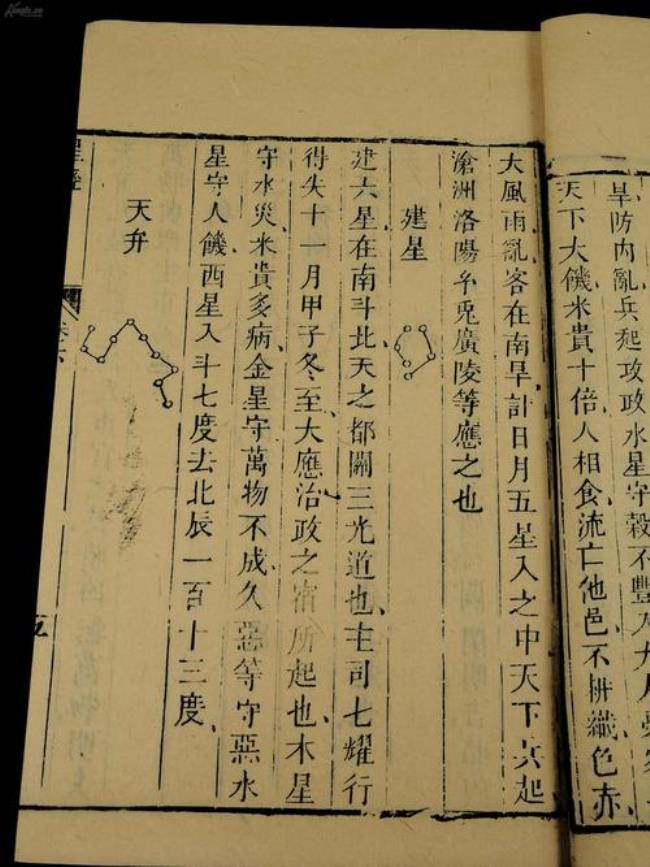 旱防内亂兵起攻政水星守榖不豐
天下大饑、米貴十倍、人相食、流亡他邑、不耕織、色赤、
大風雨亂客在南旱計日月五星入之中天下兵起
滄洲洛陽兎廣陵等應之也
建星
建六星在南斗北、天之都關三光道也、主司七耀行
得失十一月甲子冬至、大應治政之宿所起也、木星
守水災、米貴多病、金星守萬物不成、久惡等守惡水
星守人饑、西星入斗七度去北辰一百十三度、
天弁
星經
卷六
五